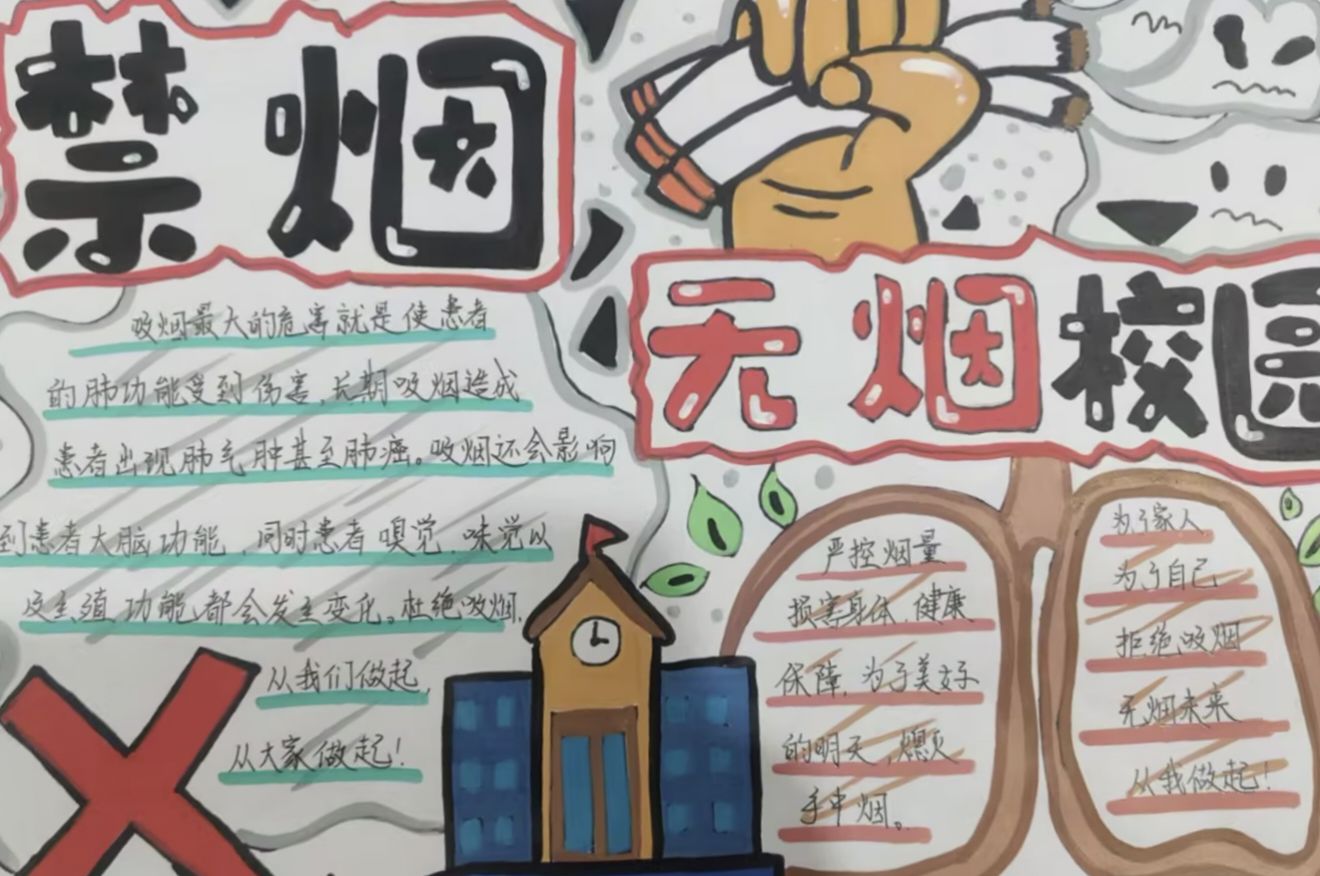 禁烟
吸烟最大的危害就是使患者
的肺功能受到伤害,长期吸烟造成
患者出现肺气肿甚至肺癌。吸烟还会影响
到患者大脑功能,同时患者嗅觉.味觉以
及生殖功能都会发生变化。杜绝吸烟,
从我们做起,
从大家做起!
无烟校园
严控烟量
损害身体,健康
保障,为了美好
的明天,熄灭
手中烟。
为了家人
为了自己
拒绝吸烟
无烟未来
从我做起!